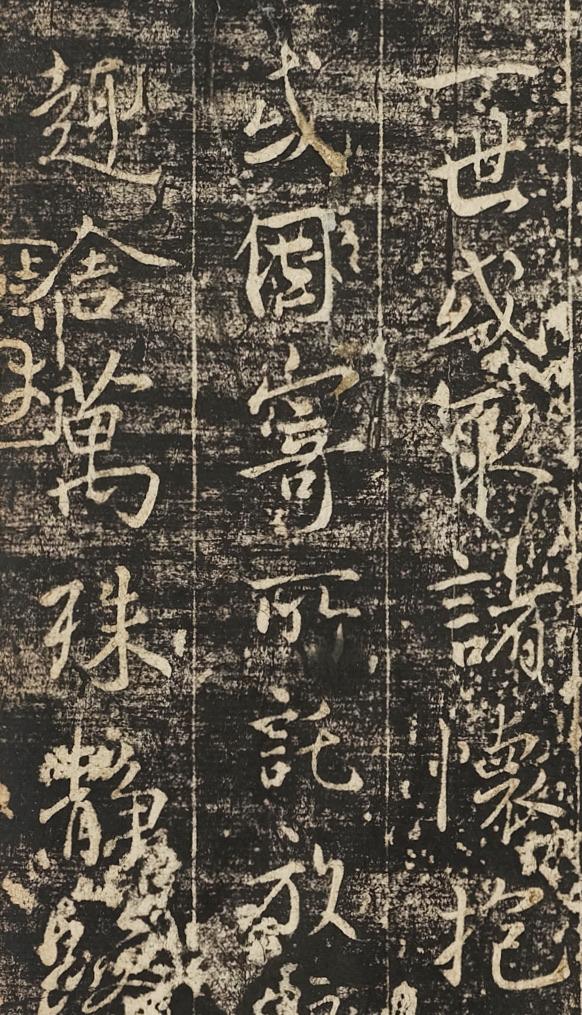 一世或取諸懷抱
或因寄所託放
趣舍萬殊靜